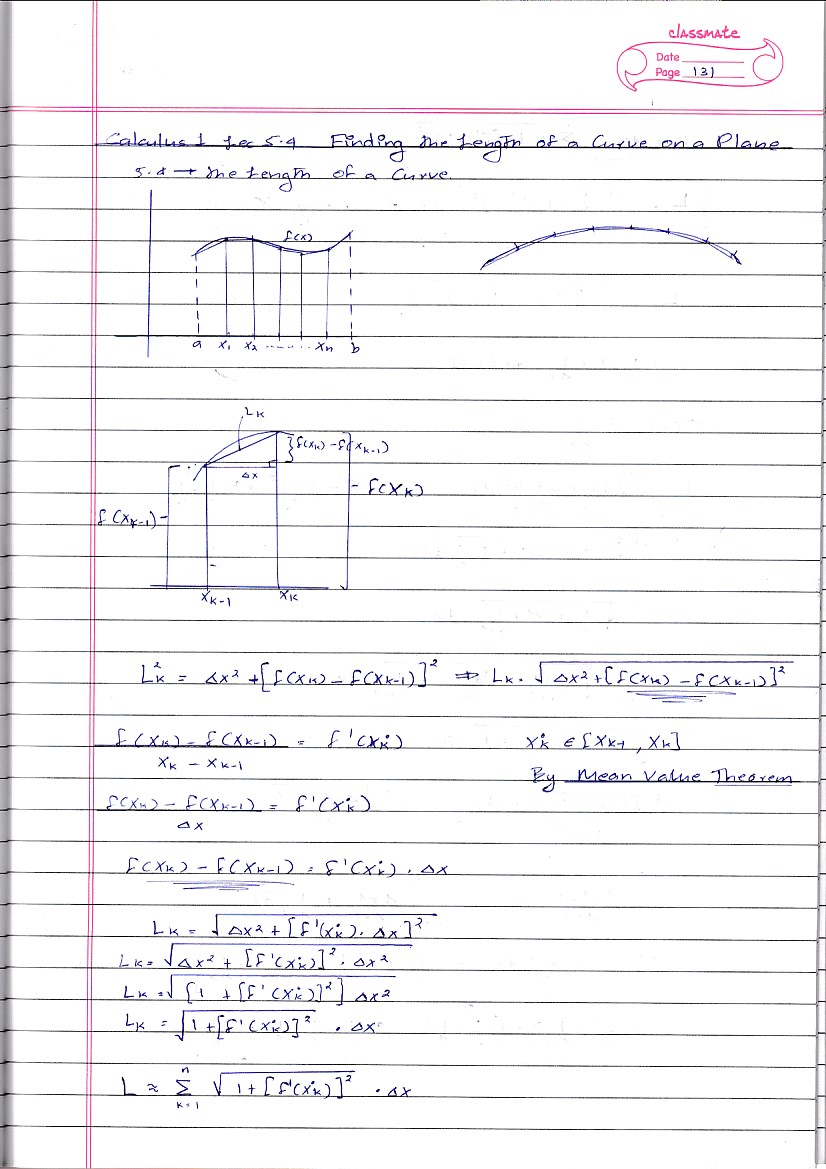 classmate
Date
Page 131
Calculus 1 Lec 5.4 Finding the Length of a Curve on a Plane
5.4 → The Length of a Curve.
f(x)
a x₁ x₂ ------... xₙ b
Lₖ
f(xₖ) - f(xₖ₋₁)
Δx
- f(xₖ)
f(xₖ₋₁) -
xₖ₋₁ xₖ
Lₖ² = Δx² + [f(xₖ) - f(xₖ₋₁)]² ⇒ Lₖ = √(Δx² + [f(xₖ) - f(xₖ₋₁)]²)
(f(xₖ) - f(xₖ₋₁)) / (xₖ - xₖ₋₁) = f'(xₖ*) xₖ* ∈ [xₖ₋₁, xₖ]
By Mean Value Theorem
(f(xₖ) - f(xₖ₋₁)) / Δx = f'(xₖ*)
f(xₖ) - f(xₖ₋₁) = f'(xₖ*) . Δx
Lₖ = √(Δx² + [f'(xₖ*) . Δx]²)
Lₖ = √(Δx² + [f'(xₖ*)]² . Δx²)
Lₖ = √([1 + [f'(xₖ*)]²] Δx²)
Lₖ = √(1 + [f'(xₖ*)]²) . Δx
L ≈ Σₖ₌₁ⁿ √(1 + [f'(xₖ*)]²) . Δx